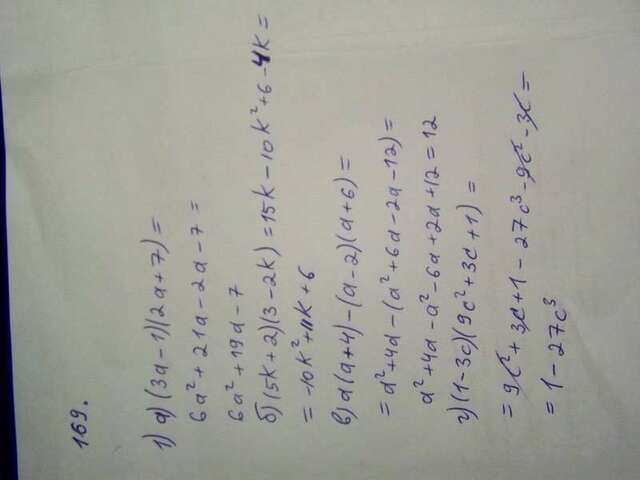 169.
1) а) (3a-1)(2a+7)=
6a²+21a-2a-7=
6a²+19a-7
б) (5k+2)(3-2k)=15k-10k²+6-4k=
=-10k²+11k+6
в) a(a+4)-(a-2)(a+6)=
=a²+4a-(a²+6a-2a-12)=
a²+4a-a²-6a+2a+12=12
г) (1-3c)(9c²+3c+1)=
=9c²+3c+1-27c³-9c²-3c=
=1-27c³